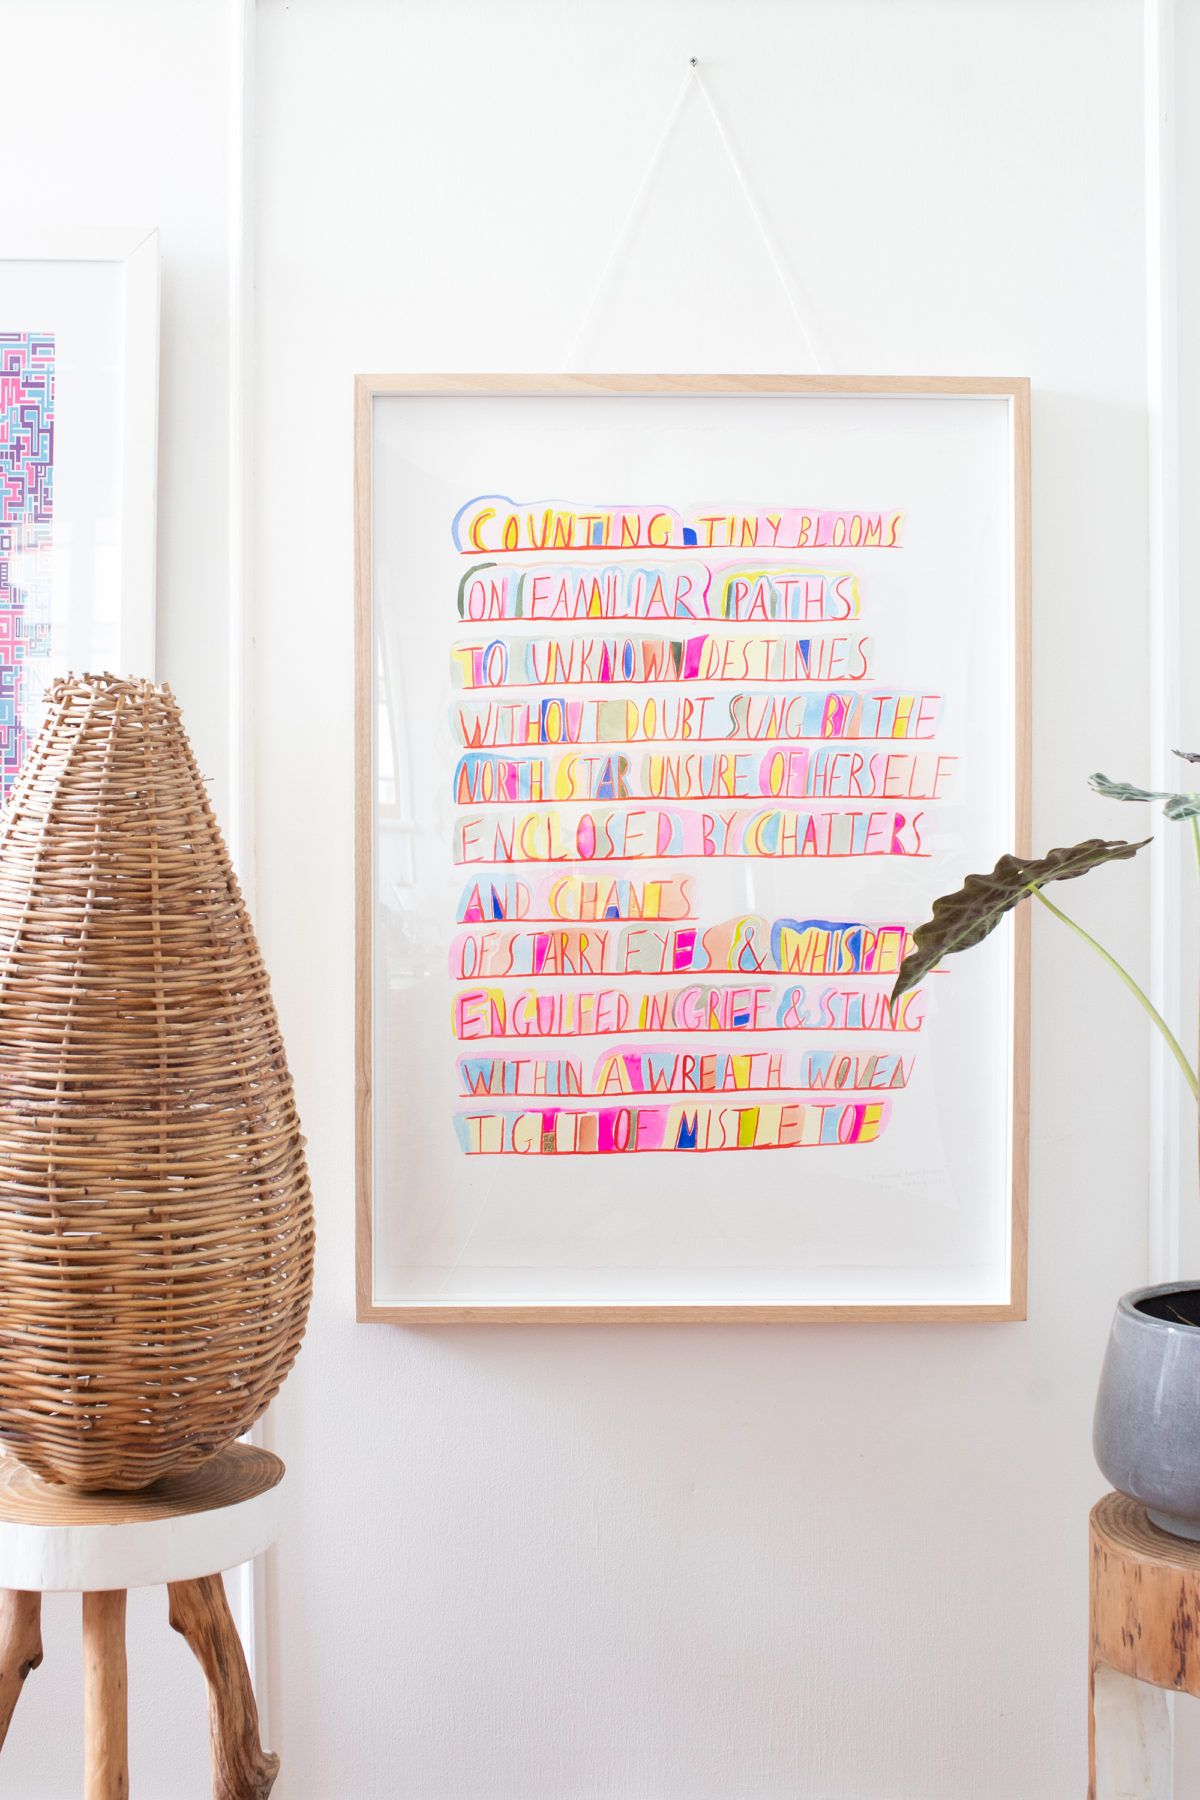 COUNTING TINY BLOOMS
ON FAMILIAR PATHS
TO UNKNOWN DESTINIES
WITHOUT DOUBT SUNG BY THE
NORTH STAR UNSURE OF HERSELF
ENCLOSED BY CHATTERS
AND CHANTS
OF STARRY EYES &
ENGULFED IN GRIEF & STUNG
WITHIN A WREATH WOVEN
TIGHT OF MISTLETOE